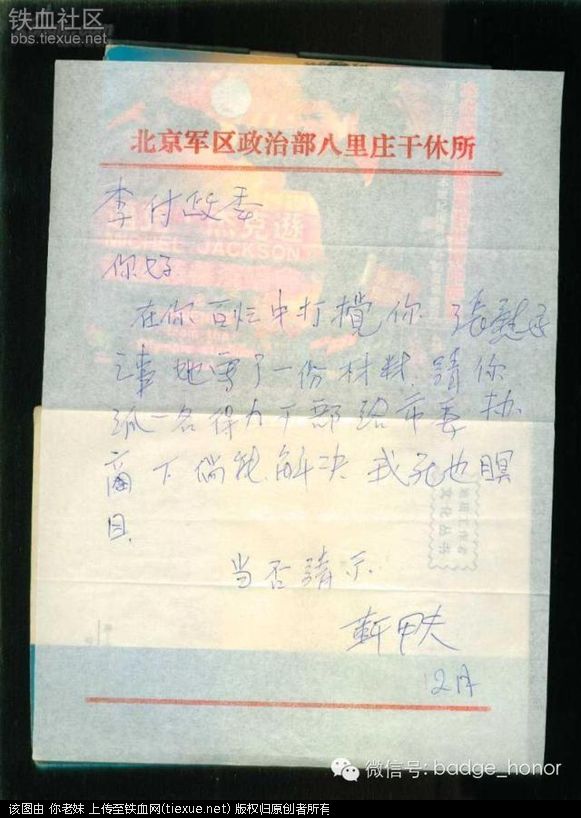 铁血社区
bbs.tiexue.net
北京军区政治部八里庄干休所
李付政委
你好
在你百忙中打搅你 张慰
之事 她写了一份材料 請你
派一名得力干部给市委协
商一下倘能解决 我死也瞑
目
当否請示
靳甲夫
12月
MICHEL JACKSON
微信号: badge_honor
该图由 你老妹 上传至铁血网(tiexue.net) 版权归原创者所有